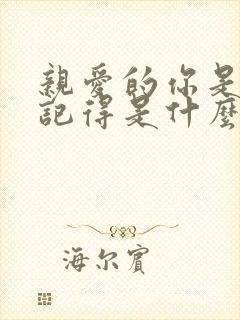 親愛的你是
記得是什麼
海尔賓